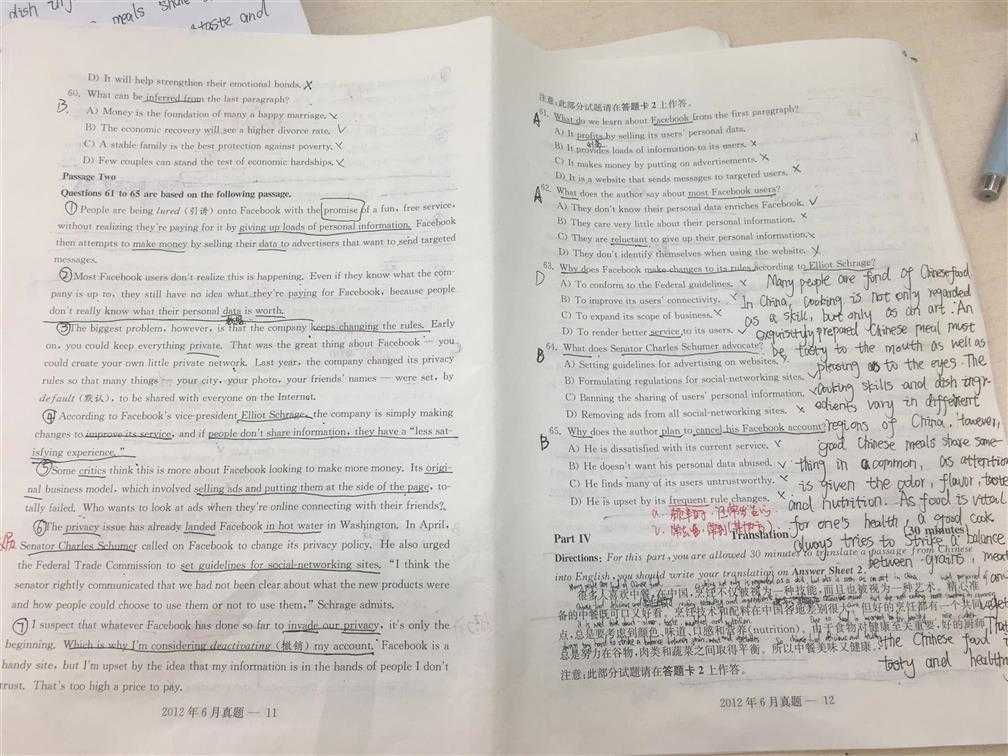 dish
meals share
taste and
D) It will help strengthen their emotional bonds. x
60. What can be inferred from the last paragraph?
B
A) Money is the foundation of many a happy marriage.
B) The economic recovery will see a higher divorce rate.
C) A stable family is the best protection against poverty.
D) Few couples can stand the test of economic hardships.
Passage Two
Questions 61 to 65 are based on the following passage.
① People are being lured (引诱) onto Facebook with the promise of a fun, free service,
without realizing they're paying for it by giving up loads of personal information. Facebook
then attempts to make money by selling their data to advertisers that want to send targeted
messages.
② Most Facebook users don't realize this is happening. Even if they know what the com-
pany is up to, they still have no idea what they're paying for Facebook, because people
don't really know what their personal data is worth.
③ The biggest problem, however, is that the company keeps changing the rules. Early
on, you could keep everything private. That was the great thing about Facebook — you
could create your own little private network. Last year, the company changed its privacy
rules so that many things — your city, your photo, your friends' names — were set, by
default (默认), to be shared with everyone on the Internet.
④ According to Facebook's vice-president Elliot Schrage, the company is simply making
changes to improve its service, and if people don't share information, they have a "less sat-
isfying experience."
⑤ Some critics think this is more about Facebook looking to make more money. Its origi-
nal business model, which involved selling ads and putting them at the side of the page, to-
tally failed. Who wants to look at ads when they're online connecting with their friends?
⑥ The privacy issue has already landed Facebook in hot water in Washington. In April,
Senator Charles Schumer called on Facebook to change its privacy policy. He also urged
the Federal Trade Commission to set guidelines for social-networking sites. "I think the
senator rightly communicated that we had not been clear about what the new products were
and how people could choose to use them or not to use them," Schrage admits.
⑦ I suspect that whatever Facebook has done so far to invade our privacy, it's only the
beginning. Which is why I'm considering deactivating (撤销) my account. Facebook is a
handy site, but I'm upset by the idea that my information is in the hands of people I don't
trust. That's too high a price to pay.
2012年6月真题 — 11
注意:此部分试题请在答题卡2上作答。
61. What do we learn about Facebook from the first paragraph?
A
A) It profits by selling its users' personal data.
B) It provides loads of information to its users. x
C) It makes money by putting on advertisements. x
D) It is a website that sends messages to targeted users. x
62. What does the author say about most Facebook users?
A
A) They don't know their personal data enriches Facebook.
B) They care very little about their personal information. x
C) They are reluctant to give up their personal information. x
D) They don't identify themselves when using the website. x
63. Why does Facebook make changes to its rules according to Elliot Schrage?
D
A) To conform to the Federal guidelines. x
B) To improve its users' connectivity.
C) To expand its scope of business. x
D) To render better service to its users.
64. What does Senator Charles Schumer advocate?
B
A) Setting guidelines for advertising on websites.
B) Formulating regulations for social-networking sites.
C) Banning the sharing of users' personal information.
D) Removing ads from all social-networking sites. x
65. Why does the author plan to cancel his Facebook account?
B
A) He is dissatisfied with its current service. x
B) He doesn't want his personal data abused.
C) He finds many of its users untrustworthy.
D) He is upset by its frequent rule changes.
Many people are fond of Chinese food
In China, cooking is not only regarded
as a skill, but only as an art. An
exquisitly prepared Chinese meal must
be tasty to the mouth as well as
pleasing to the eyes. The
cooking skills and dish ingr-
edients vary in different
regions of China. However,
good Chinese meals share some-
thing in common, as attention
is given the odor, flavor, taste
and nutrition. As food is vital
for one's health, a good cook
always tries to strike a balance
between grains, meat
and
That
the Chinese food
tasty and health
Part IV Translation (30 minutes)
Directions: For this part, you are allowed 30 minutes to translate a passage from Chinese
into English, you should write your translation on Answer Sheet 2.
很多人喜欢中餐,在中国,烹饪不仅被视为一种技能,而且也被视为一种艺术。精心准
备的中餐既可口又好看,烹饪技术和配料在中国各地差别很大。但好的烹饪都有一个共同
点,总是要考虑到颜色、味道、口感和营养(nutrition)。由于食物对健康至关重要,好的厨师
总是努力在谷物、肉类和蔬菜之间取得平衡,所以中餐美味又健康。
注意:此部分试题请在答题卡2上作答。
2012年6月真题 — 12